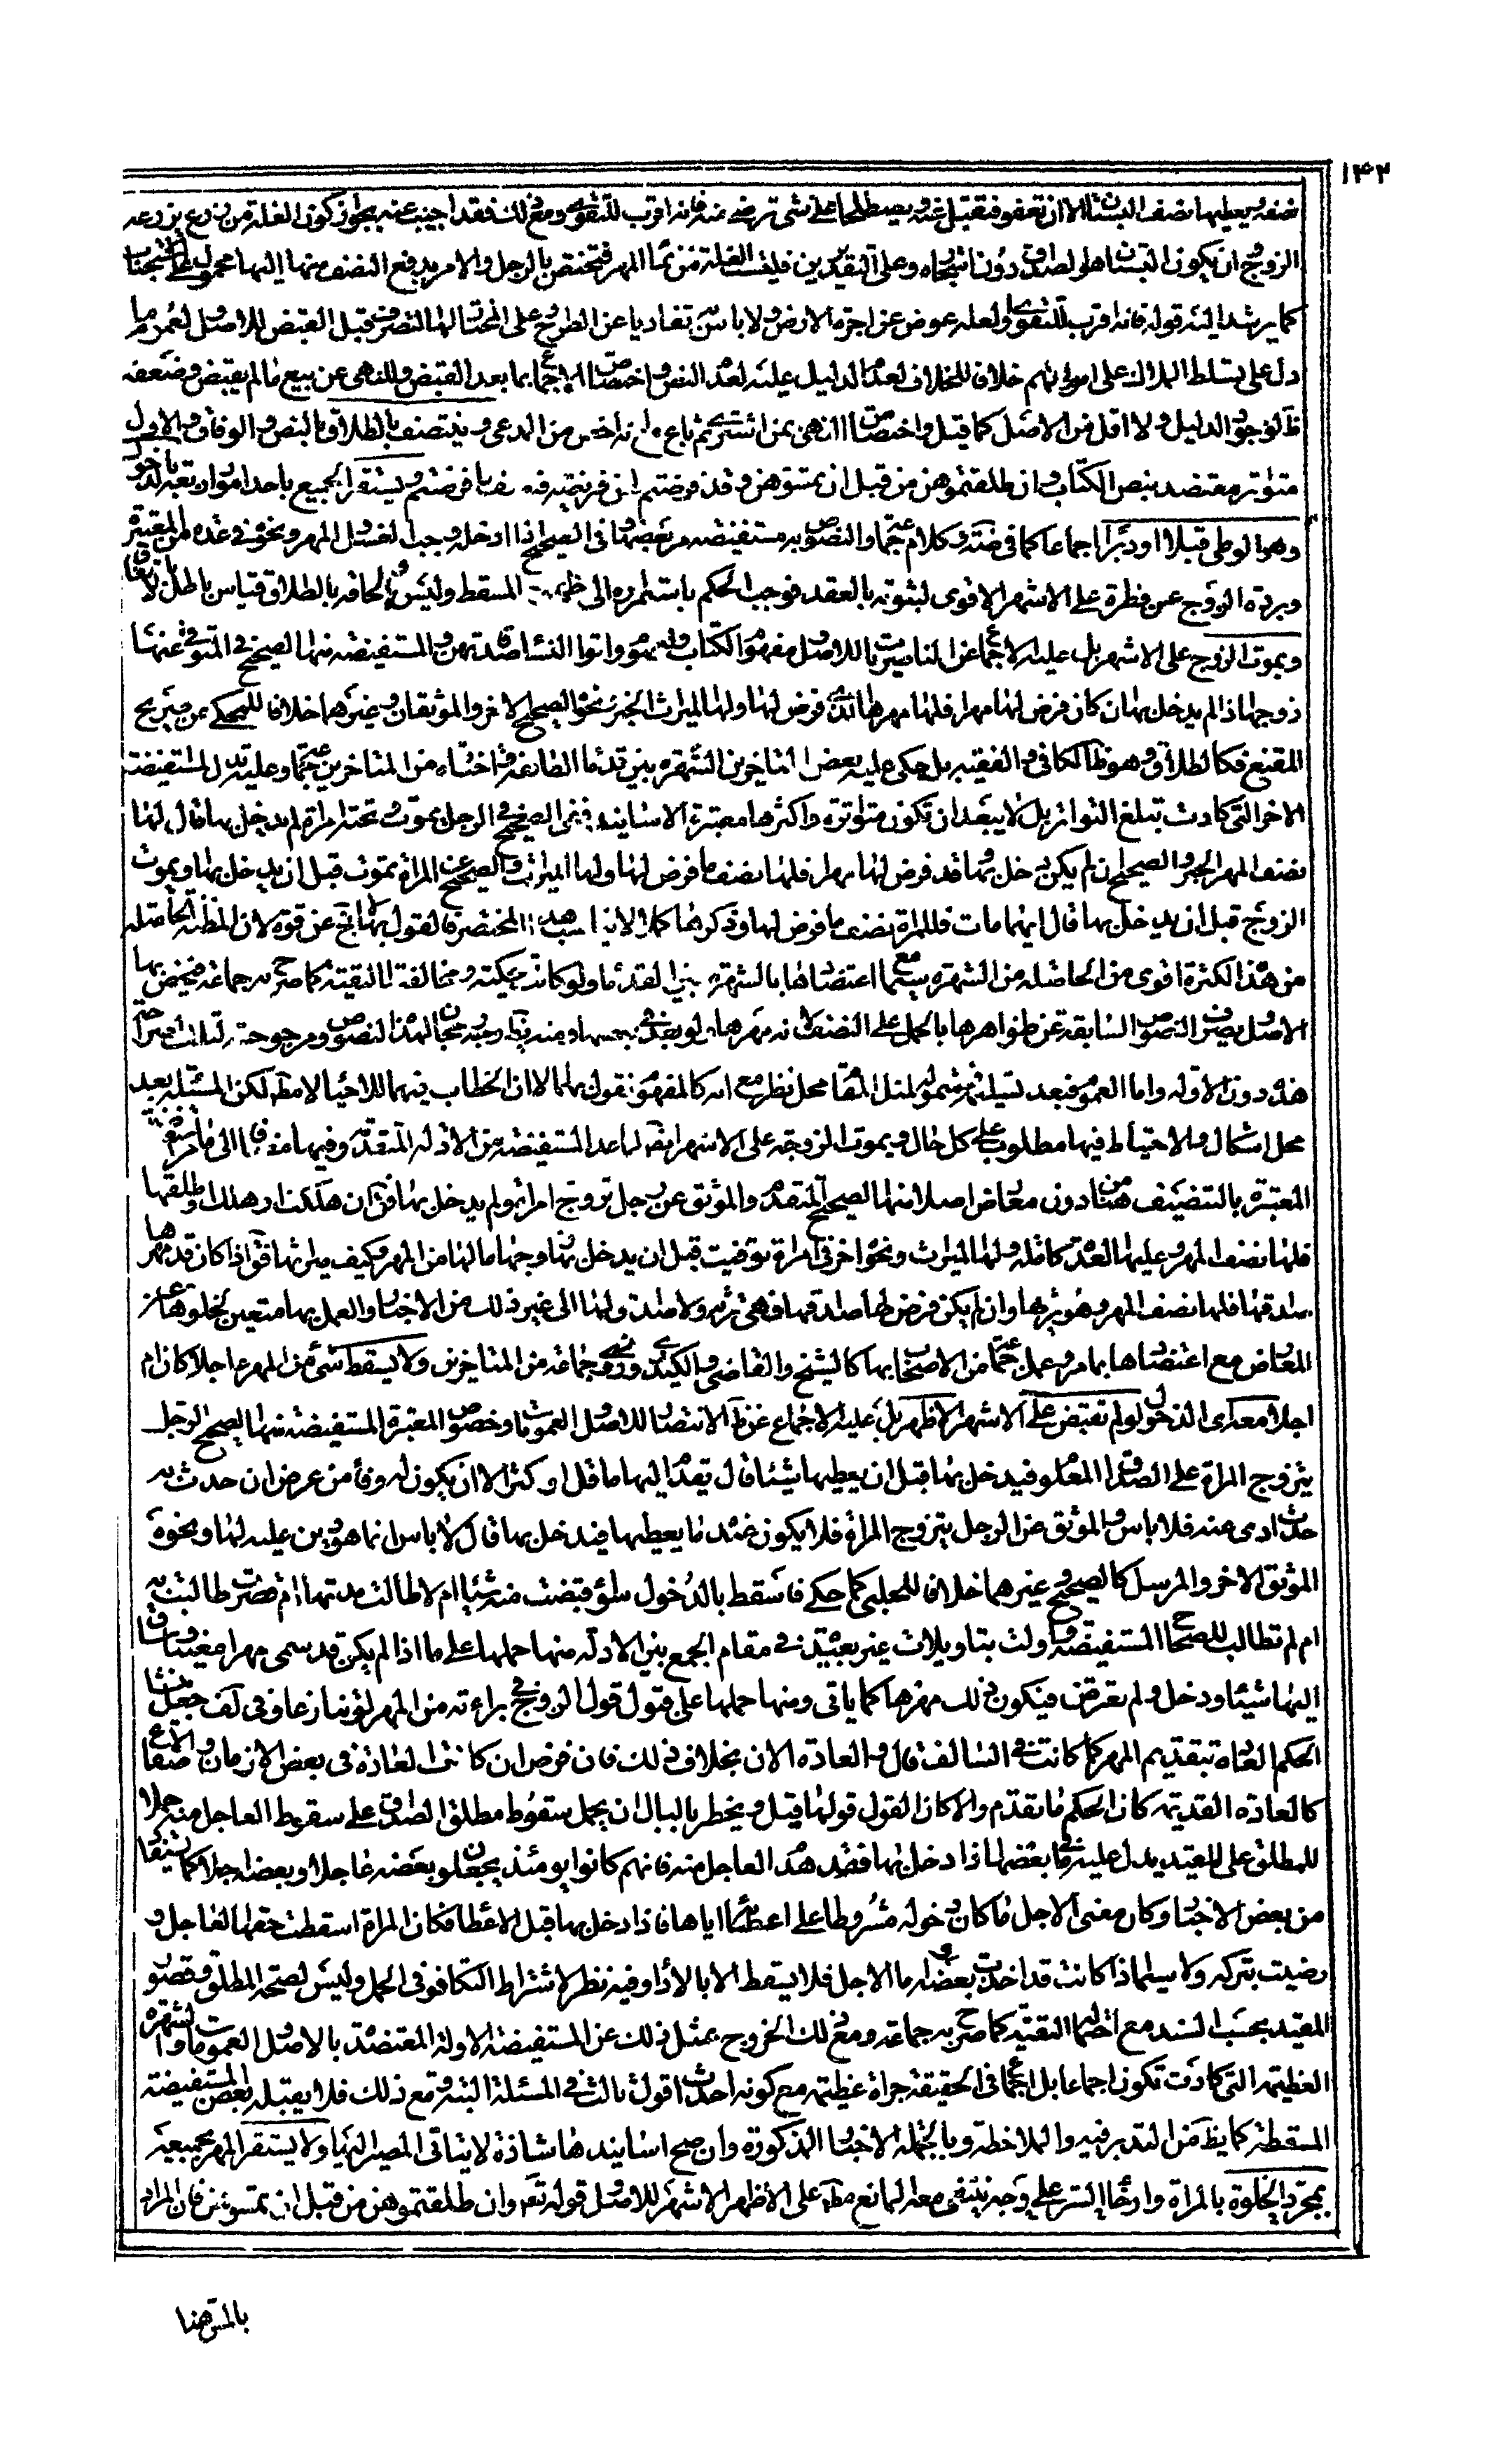 ١٤٢
نصفه ويعطيها نصف البستان الا ان تعفو فتقبل عنه ويصطلحا على شيء ترضى منه فانه اقرب للتقوى ومع ذلك فقد اجيب عنه بجواز كون الغلة من زرع يزرعه
الزوج وان يكون البستان اهو الصداق دون اشجاره وعلى التقديرين فليست الغلة من نماء المهر فتختص بالرجل والامر بدفع النصف منها اليها محمول على الاستحباب
كما يرشد اليه قوله فانه اقرب للتقوى ولعله عوض عن اجرة الارض ولا باس به تفاديا عن الطرح على المختار لها التصرف قبل القبض للاصل ولعموم ما
دل على تسلط الملاك على اموالهم خلافا للخلاف لعدم الدليل عليه لعدم النص واختصاص الاجماع بما بعد القبض وللنهي عن بيع ما لم يقبض وضعفه
ظ لوجود الدليل ولا اقل من الاصل كما قيل واختصاص النهي بمن اشترى ثم باع مع انه اخص من المدعى وينتصف بالطلاق بالنص والوفاق والاول
متواتر معتضد بنص الكتاب وان طلقتموهن من قبل ان تمسوهن وقد فرضتم لهن فريضة فنصف ما فرضتم ويستقر الجميع باحد امور اربعة بالدخول
وهو الوطى قبلا او دبرا اجماعا كما في ضة وكلام جماعة والنصوص به مستفيضة مر بعضها ففي الصحيح اذا ادخله وجب الغسل والمهر ونحوه في عدة من المعتبرة
وبردة الزوج عن فطرة على الاشهر الاقوى لثبوته بالعقد فوجب الحكم باستمراره الى ظهور المسقط وليس والحاقه بالطلاق قياس باطل لا نقول به
وبموت الزوج على الاشهر بل عليه الاجماع عن الناصريات للاصل مفهوم الكتاب وعموم واتوا النساء صدقاتهن والمستفيضة منها الصحيح في المتوفى عنها
زوجها اذا لم يدخل بها ان كان فرض لها مهرا فلها مهرها الذي فرض لها ولها الميراث الخبر ونحوه الصحيح الاخر والموثقان وغيرهما خلافا للمحكي عن صريح
المقنع فكالطلاق وهو ظ الكافي والفقيه بل حكى عليه بعض المتاخرين الشهرة بين قدماء الطائفة واختاره من المتاخرين جماعة وعليه تدل المستفيضة
الاخر التي كادت تبلغ التواتر بل لا يبعد ان تكون متواترة واكثرها معتبرة الاسانيد ففي الصحيح في الرجل يموت وتحته امراة لم يدخل بها قال لها
نصف المهر الخبر والصحيح ان لم يكن دخل بها وقد فرض لها مهرا فلها نصف ما فرض لها ولها الميراث والصحيح عن المراة تموت قبل ان يدخل بها او يموت
الزوج قبل ان يدخل بها قال ايهما مات فللمراة نصف ما فرض لها وذكرها كلا لا يناسب هذا المختصر فالقول بها لا يخ عن قوة لان المظنة الحاصلة
من هذه الكثرة اقوى من الحاصلة من الشهرة سيما مع اعتضادها بالشهرة بين القدماء ولو كانت محكية ومخالفة التقية كما صرح به جماعة فيخص بها
الاصل ويصرف النصوص السابقة عن ظواهرها بالحمل على النصف لانه مهرها
هذه دون الاولة واما العموم فبعد تسليم شموله لمثل المقام محل نظر مع انه كالمفهوم نقول بهما الا ان الخطاب فيهما للاحياء لا مط لكن المسئلة بعد
محل اشكال والاحتياط فيها مطلوب على كل حال وبموت الزوجة على الاشهر ايضا لما عدا المستفيضة من الادلة المتقدمة وفيها مضافا الى ما مر
المعتبرة بالتنصيف هنا من دون معارض اصلا منها الصحيح المتقدم والموثق عن رجل تزوج امراة ولم يدخل بها فق ان هلكت او هلك او طلقها
فلها نصف المهر وعليها العدة كاملة ولها الميراث ونحوه اخر في امراة توفيت قبل ان يدخل بها زوجها ما لها من المهر وكيف ميراثها فق اذا كان قد مهرها
صداقها فلها نصف المهر وهو يرثها وان لم يكن فرض لها صداقها فهي ترثه ولا صداق لها الى غير ذلك من الاخبار والعمل بها متعين لخلوها عن
المعارض مع اعتضادها بما مر وعمل جماعة من الاصحاب بها كالشيخ والقاضي والكيدري وجماعة من المتاخرين ولا يسقط شيء من المهر عاجلا كان ام
اجلا معه اى الدخول ولو لم تقبض على الاشهر الاظهر بل عليه الاجماع عن ظ الانتصار للاصل العمومات وخصوص المعتبرة المستفيضة منها الصحيح الرجل
يتزوج المراة على الصداق المعلوم فيدخل بها قبل ان يعطيها شيئا قال يقدم اليها ما قل او كثر الا ان يكون له وفاء من عرض ان حدث به
حدث ادى عنه فلا باس والموثق عن الرجل يتزوج المراة فلا يكون عنده ما يعطيها فيدخل بها قال لا باس انما هو دين عليه لها ونحوه
الموثق الاخر والمرسل كالصحيح وغيرهما خلافا للحلبي كما حكى فاسقط بالدخول سواء قبضت منه شيئا ام لا طالت مدتها ام قصرت طالبت به
ام لم تطالب للصحاح المستفيضة واولت بتاويلات غير بعيدة في مقام الجمع بين الادلة منها حملها على ما اذا لم يكن قد سمى مهرا معينا وساق
اليها شيئا ودخل ولم تعترض فيكون ذلك مهرها كما ياتى ومنها حملها على قبول قول الزوج في براءته من المهر لو تنازعا وفي لف جعل منشا
الحكم العادة بتقديم المهر كما كانت في السالف قال والعادة الان بخلاف ذلك فان فرض ان كانت العادة في بعض الازمان والاصقاع
كالعادة القديمة كان الحكم ما تقدم والا كان القول قولها قيل ويخطر بالبال ان يحمل سقوط مطلق الصداق على سقوط العاجل منه حملا
للمطلق على المقيد يدل عليه ما في بعضها اذا دخل بها فقد هدم العاجل منه فانهم كانوا يومئذ يجعلون بعضه عاجلا وبعضه اجلا كما يستفاد
من بعض الاخبار وكان معنى الاجل ما كان دخوله مشروطا على اعطائه اياها فاذا دخل بها قبل الاعطاء فكان المراة اسقطت حقها العاجل و
رضيت بتركه ولا سيما اذا كانت قد اخذت بعضه واما الاجل فلا يسقط الا بالاداء وفيه نظر لاشتراط التكافؤ في الحمل وليس لصحة المطلق وقصور
المقيد بحسب السند مع احتمالهما التقية كما صرح به جماعة ومع ذلك الخروج بمثل ذلك عن المستفيضة الاولة المعتضدة بالاصل العمومات والشهرة
العظيمة التي كادت تكون اجماعا بل اجماع في الحقيقة جراة عظيمة مع كونه احداث قول ثالث في المسئلة البتة ومع ذلك فلا يقبله بعض المستفيضة
المسقطة كما يظ من التدبر فيه والملاحظة وبالجملة الاخبار المذكورة وان صح اسانيدها شاذة لا يتاتى المصير اليها ولا يستقر المهر بجميعه
بمجرد الخلوة بالمراة وارخاء الستر على وجه ينتفى معه المانع مط على الاظهر الاشهر للاصل قوله تع وان طلقتموهن من قبل ان تمسوهن فان المراد
بالمس هنا